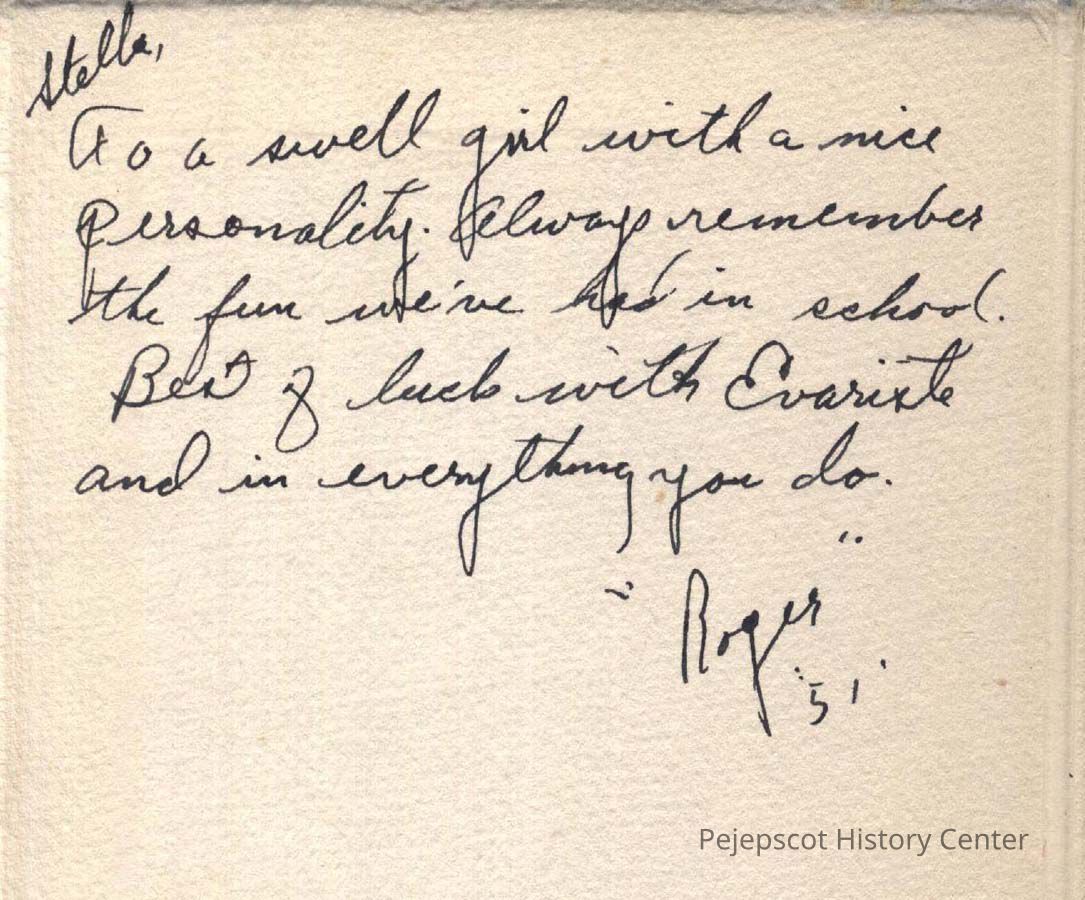 Stella,
To a swell girl with a nice
personality. Always remember
the fun we've had in school.
Best of luck with Evariste
and in everything you do.
"Roger"
'51'
Pejepscot History Center